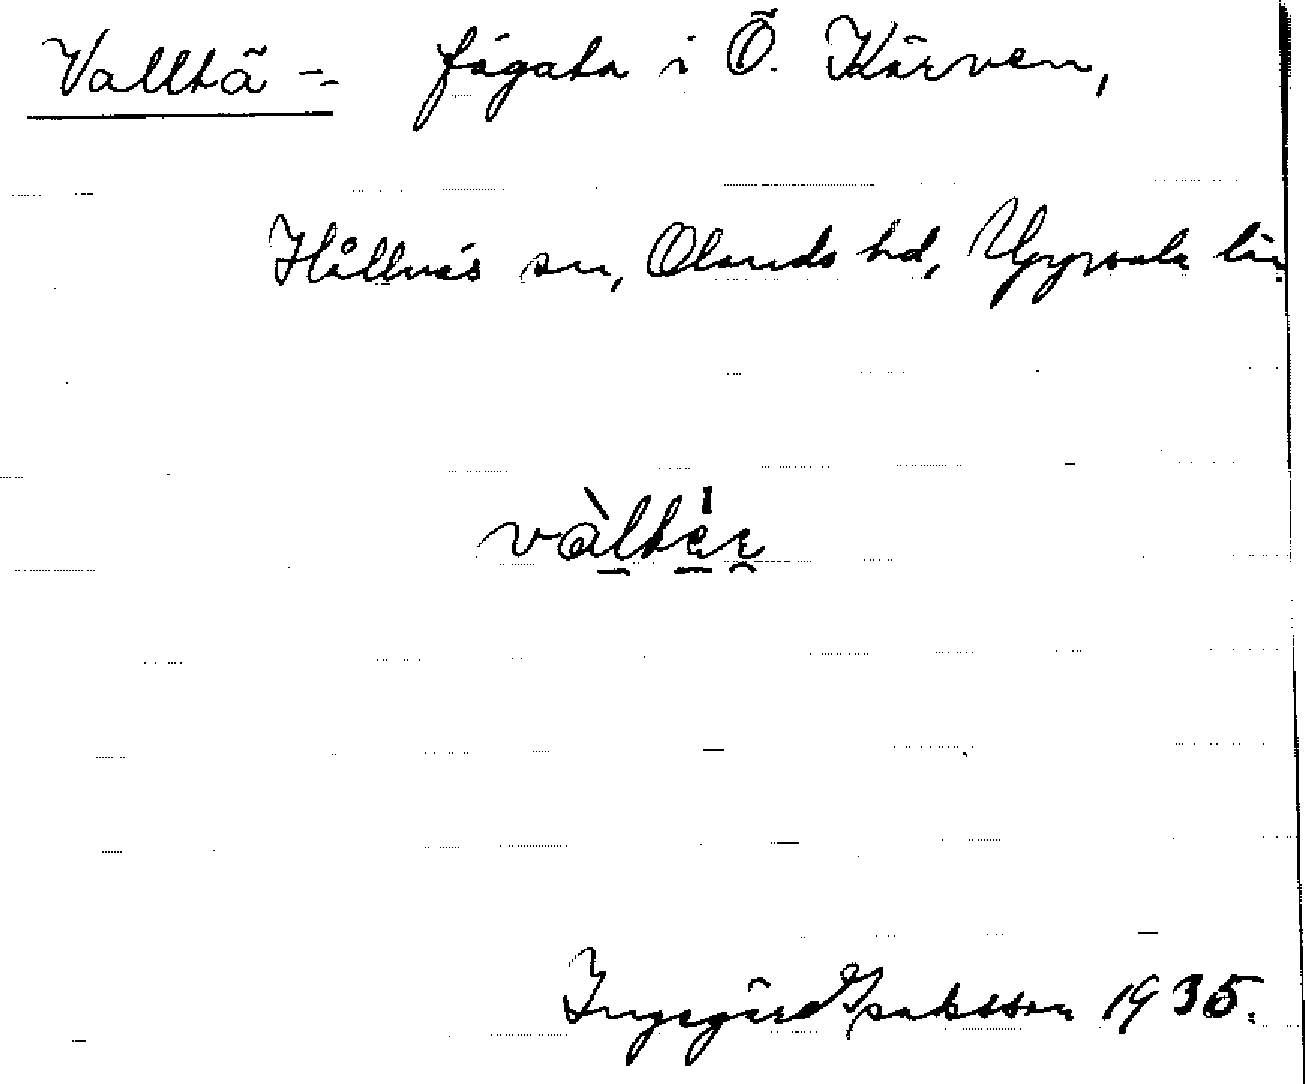 Valltä -- fägata i Ö. Kärven,
Hållnäs sn, Olands hd, Uppsala län
vàltér
Ingegärd Isaksson 1935.